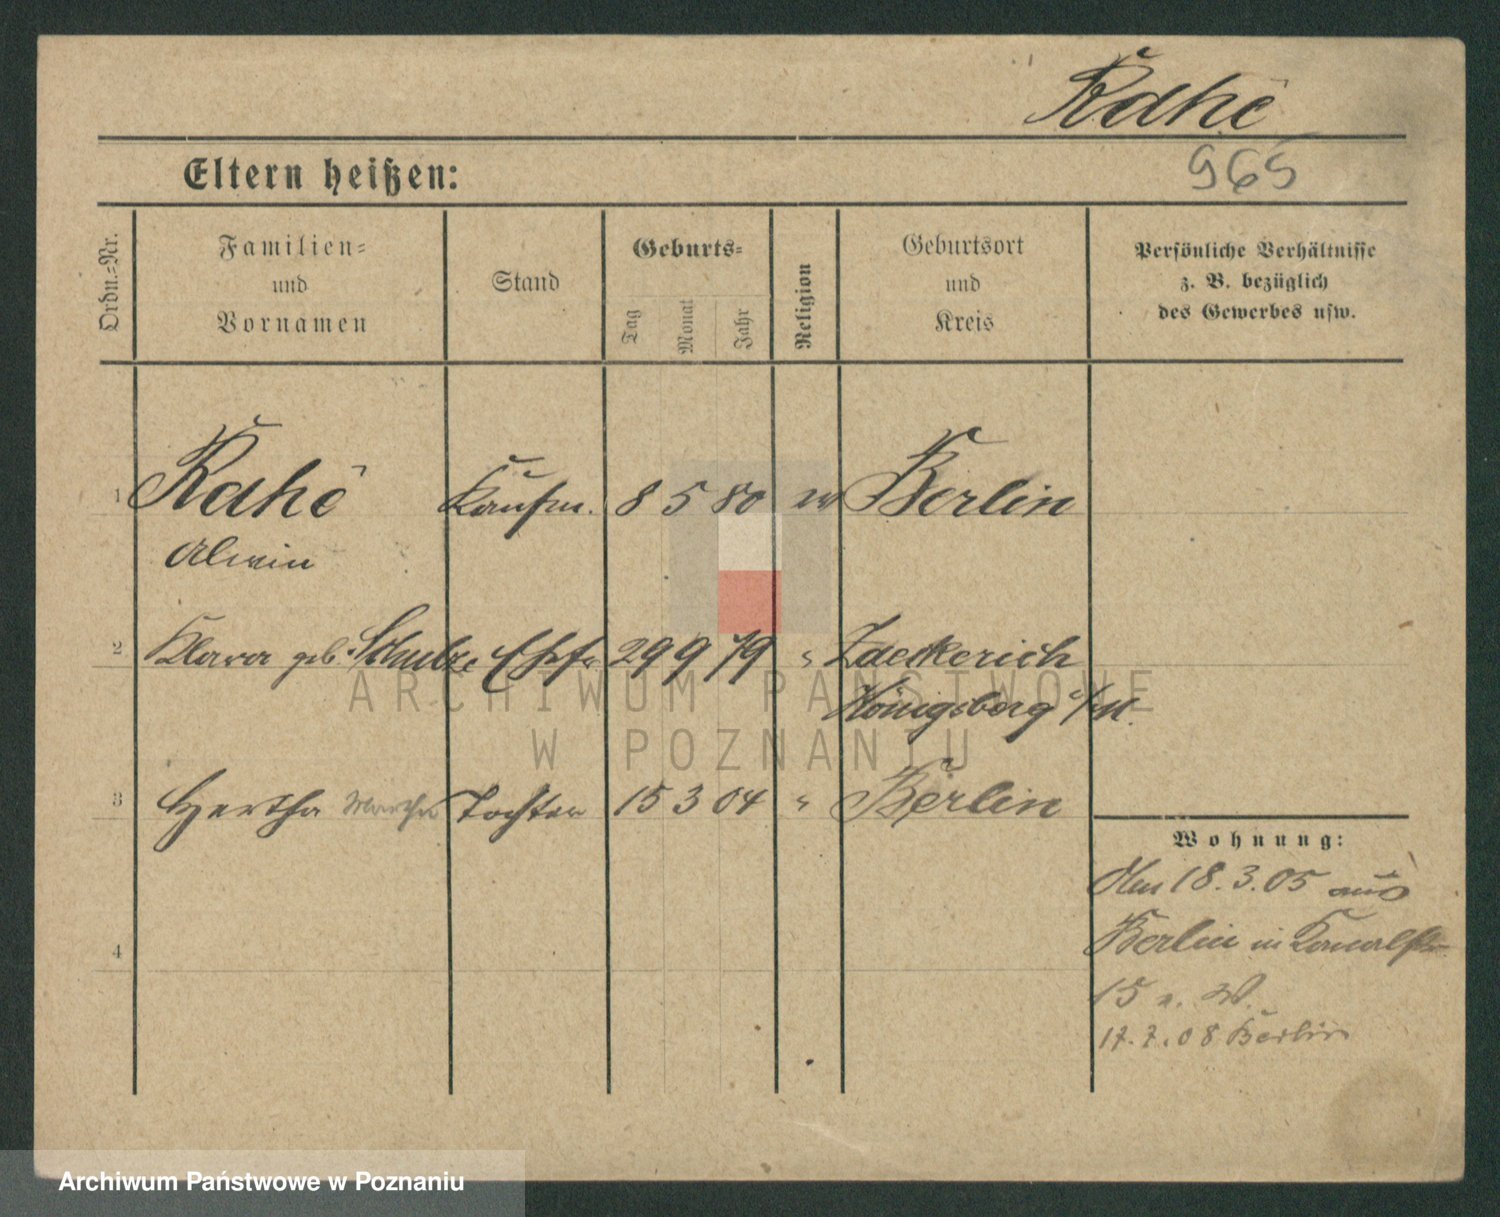 Rahé
965
Eltern heißen:
Ordn.-Nr.
Familien-
und
Vornamen
Stand
Geburts-
Tag
Monat
Jahr
Religion
Geburtsort
und
Kreis
Persönliche Verhältnisse
z. B. bezüglich
des Gewerbes usw.
1 Rahé Kaufm. 8 5 80 ev Berlin
Alwin
2 Klara geb. Schulze Ehefr. 29 9 79 " Zaeckerich
Königsberg i/M.
3 Hertha Martha Tochter 15 3 04 " Berlin
Wohnung:
18.3.05 aus
Berlin in Kanalstr
15 n. W.
17.7.08 Berlin
4
ARCHIWUM PAŃSTWOWE
W POZNANIU
Archiwum Państwowe w Poznaniu